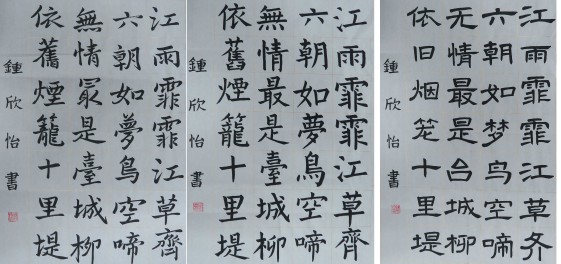 江雨霏霏江草齊
六朝如夢鳥空啼
無情最是臺城柳
依舊煙籠十里堤
鍾欣怡書
江雨霏霏江草齊
六朝如夢鳥空啼
無情最是臺城柳
依舊煙籠十里堤
鍾欣怡書
江雨霏霏江草齐
六朝如梦鸟空啼
无情最是台城柳
依旧烟笼十里堤
鍾欣怡書